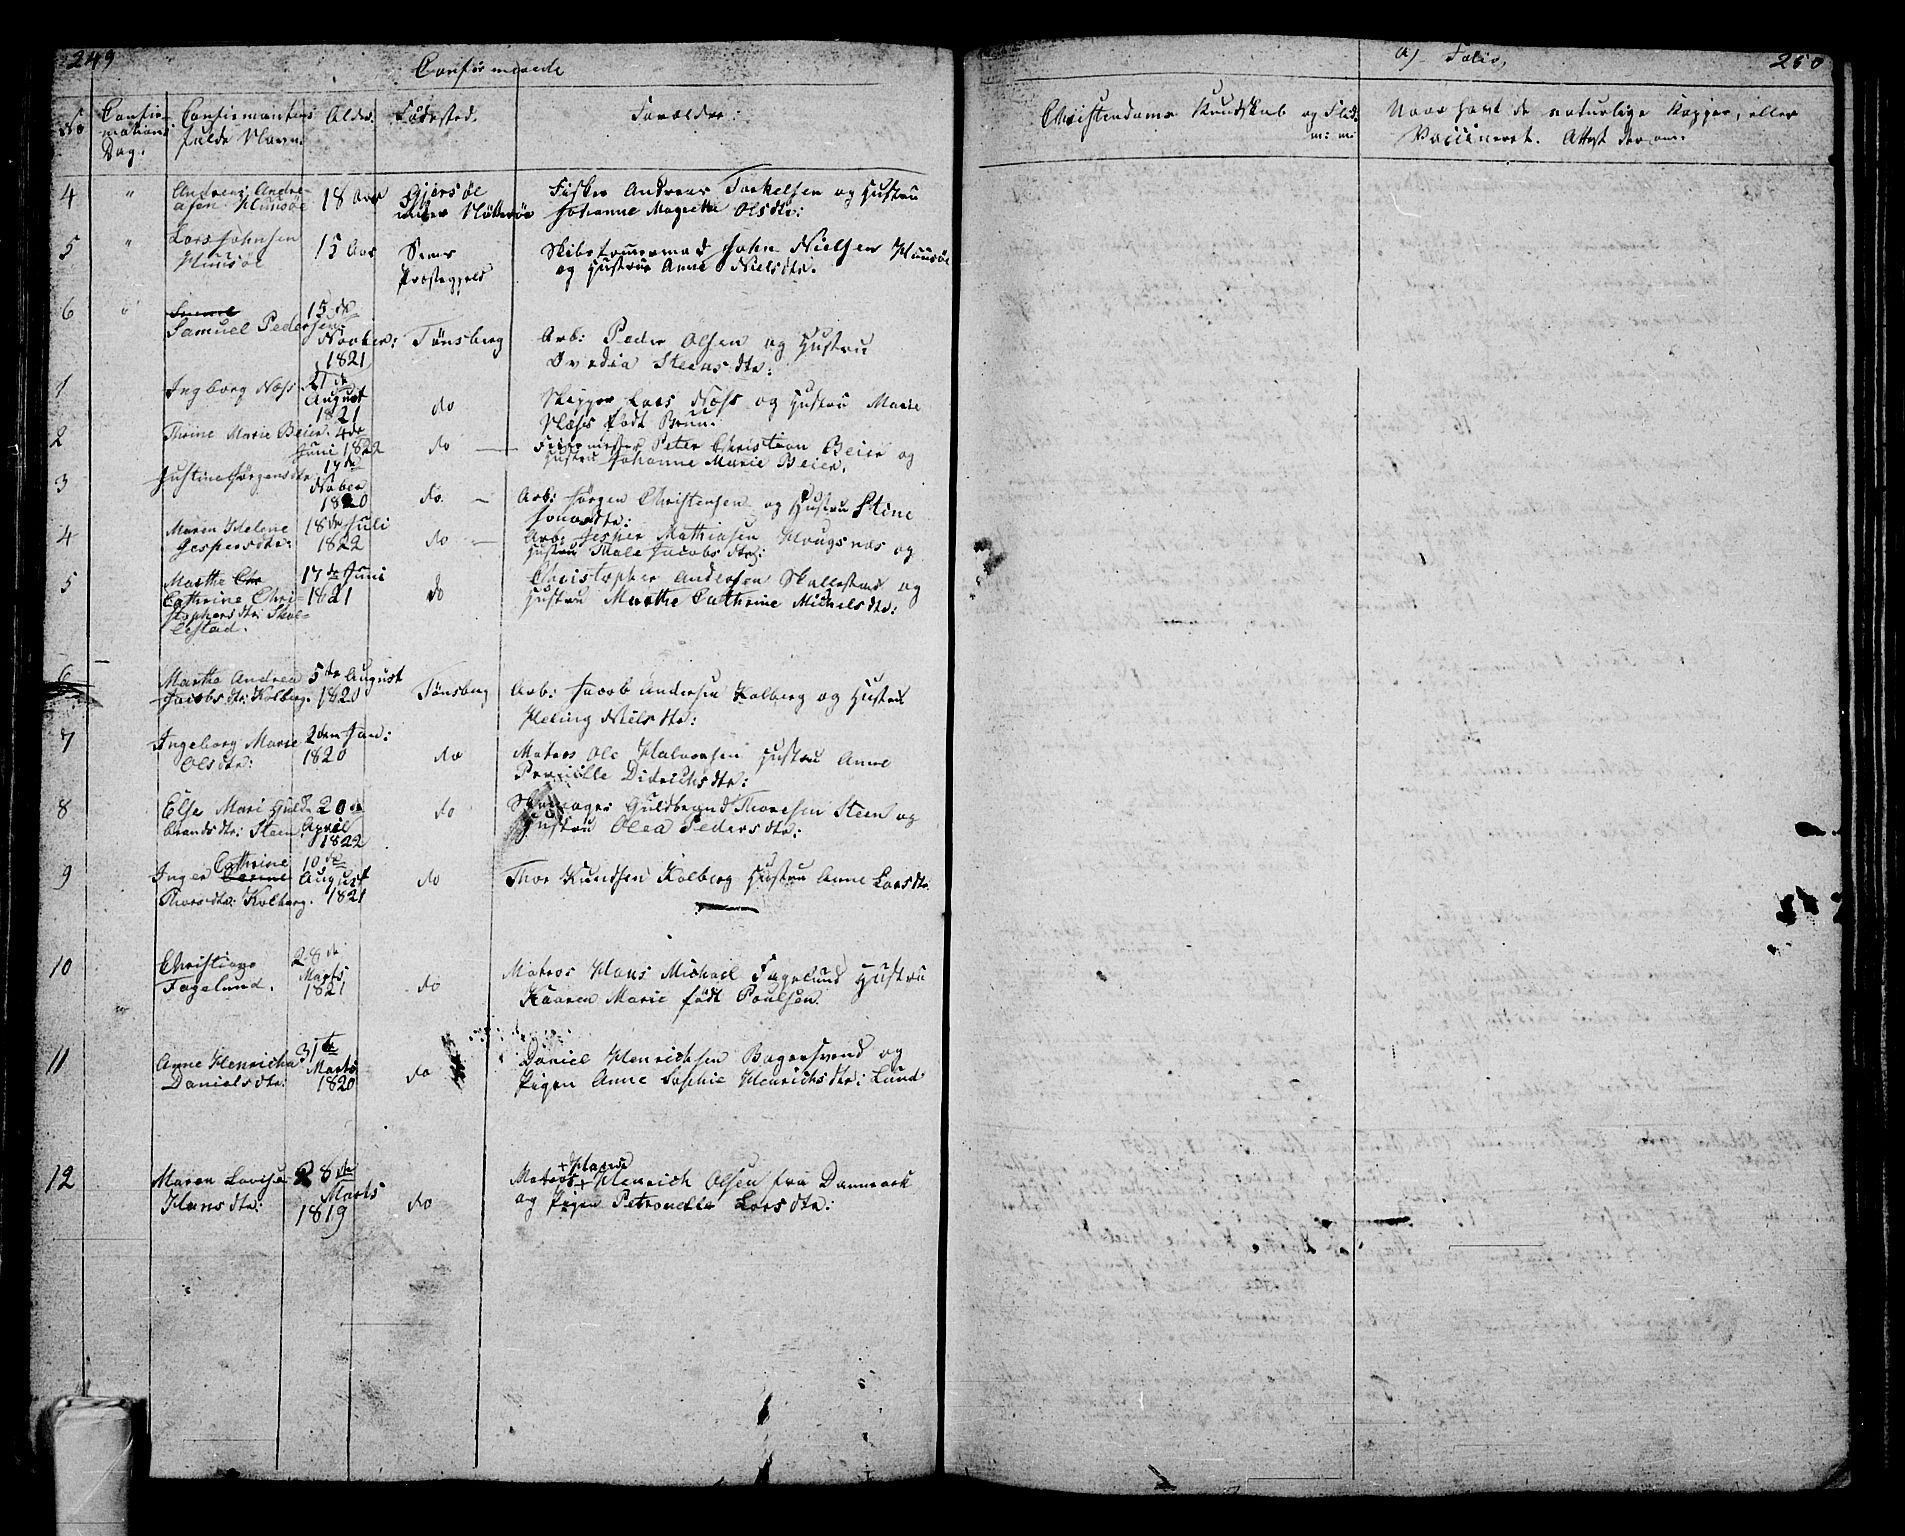 249
Confirmerede
No Confir- Confirmantens Alder. Fødested. Forældre
mations fulde Navn.
Dag.
4 " Andreas Andre- 18 Aar Fisker Andreas Torkelsen og Hustru
asen Huusøe under Nøtterøe Johanne Magrette Olsdtr:
5 " Lars Johnsen 15 Aar Sems Skibstømmermand John Nielsen Huusøe
Huusøe Præstegjeld og Hustrue Anne Nielsdtr.
6 " Samuel Pedersen 15de Novber: 1821 Tønsberg Arb: Peder Olsen og Hustru
Steensdtr:
1 Ingborg Næss 21de August 1821 do Skipper Lars Næss og Hustru Marie
Næss født Brun.
2 Thrine Marie Beier. 4de Juni 1822 do Peter Christian Beier og
Hustru Johanne Marie Beier.
3 Justine Jørgensdtr 17de Nvber 1820 do. Arb: Jørgen Christensen og Hustru Stine
4 Maren Helene 18de Juli do Arb: Jesper Mathiasen Hougsnæs og
Jespersdtr: 1822 Hustru Male Jacobsdtr:
5 Marthe Chr 17de Juni Christopher Andersen Skallestad og
Cathrine Chri- 1821 do Hustru Marthe Cathrine Michelsdtr:
stophersdtr: Skal-
lestad.
6 Marthe Andrea 5te August Tønsberg Arb: Jacob Andersen Kolberg og Hustru
Jacobsdtr: Kolberg. 1820 Heling Nielsdtr:
7 Ingeborg Marie 2den Jan: do Matros Ole Halvorsen Hustru Anne
Olsdtr: 1820 Pernille Didrichsdtr:
8 Else Mari Guld- 20de do Skomager Guldbrand Thoresen Steen og
brandsdtr: Steen. April 1822 Hustru Olea Pedersdtr:
Cathrine
9 Inger 10de August 1821 do Thor Knudsen Kolberg Hustru Anne Larsdtr.
Thorsdtr: Kolberg.
10 Christiane 28de Marts Matros Hans Michael Fagelund Hustru
Fagelund. 1821 do Kaaren Marie født Poulsen
11 Anne Henricha 31te Marts Daniel Henrichsen Bagersvend og
Danielsdtr: 1820 do Pigen Anne Sophie Henrichsdtr: Lund
+ Hans
12 Maren Lovise 28de Marts Matros + Henrich Olsen fra Danmark
Hansdtr: 1819 do og Pigen Petronelle Larsdtr:
a) Folio, 250
Christendoms Kundskab og Flid. Naar havt de naturlige Kopper, eller
m: m: Vaccineret. Attest derom.